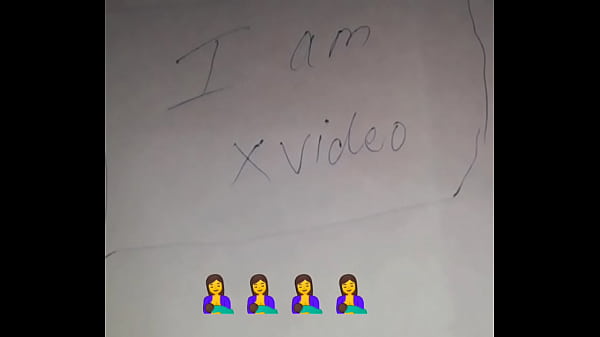 I am
xvideo